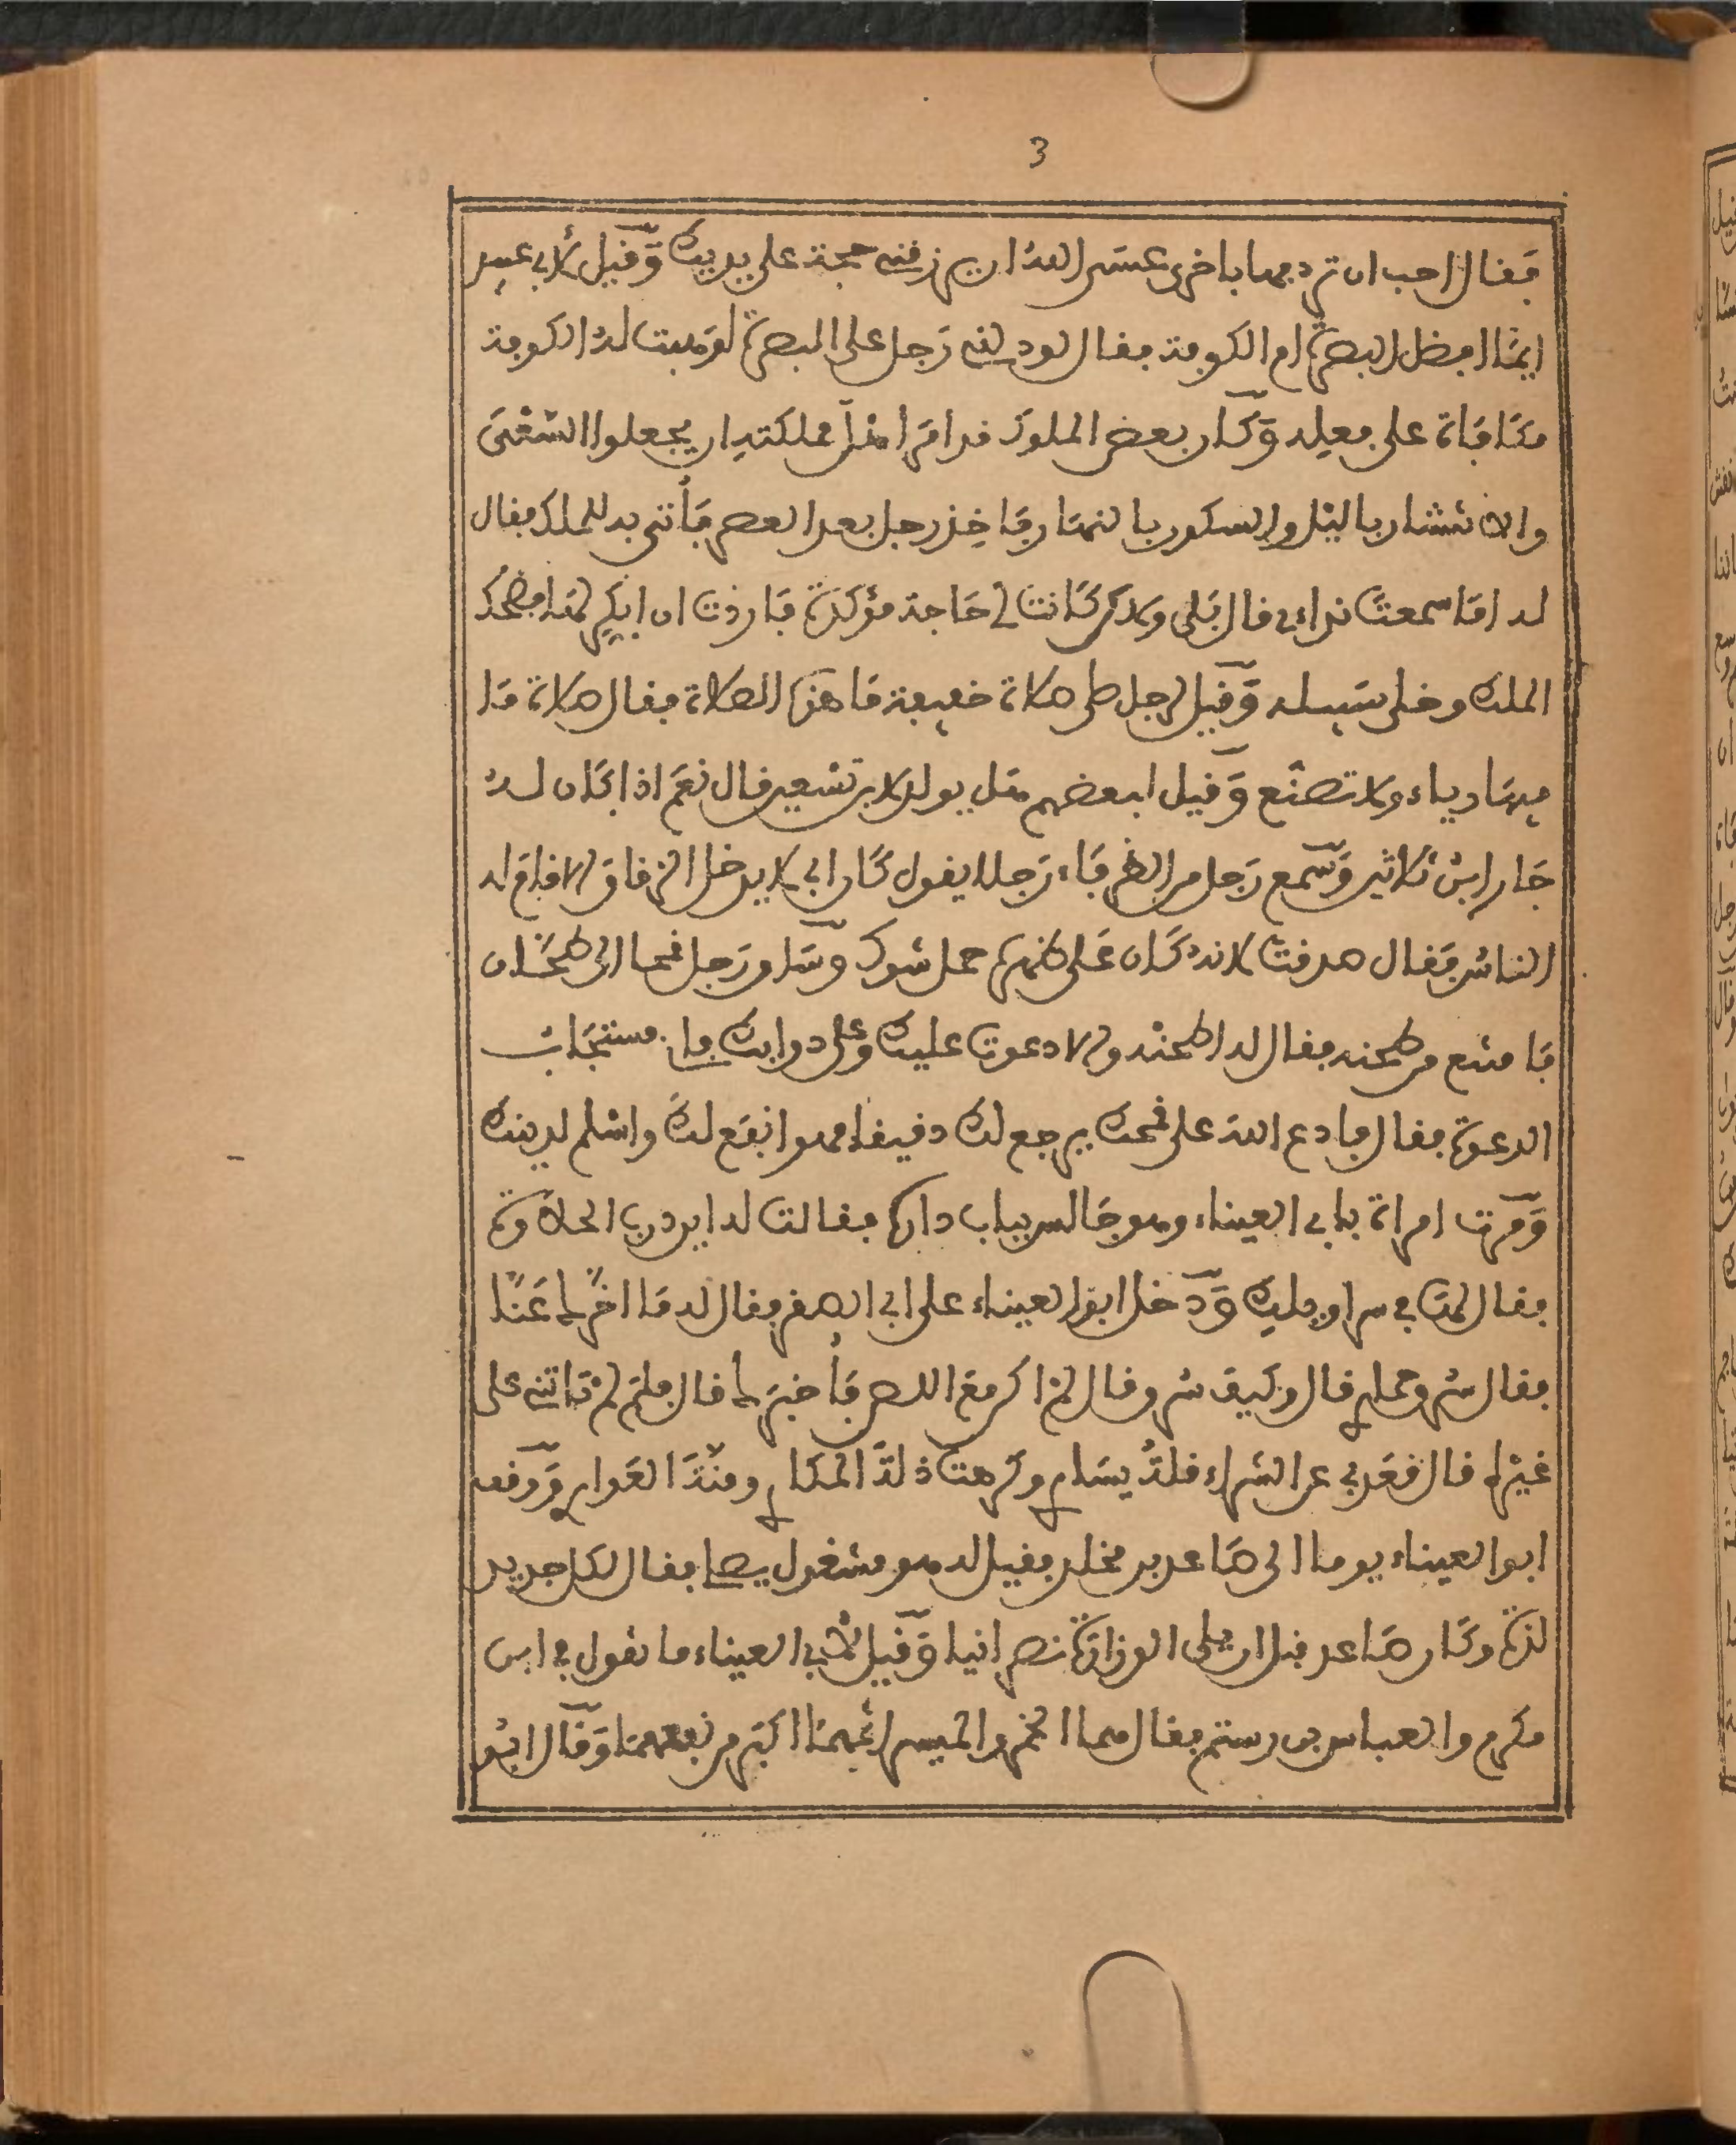 3
فقال احب ان تردفها باخرى عسى الله ان يرزقني حجة على يديك وقيل لابي عبيد
ايما افضل البصرة ام الكوفة فقال لو دلني رجل على البصرة لوهبت له الكوفة
مكافاة على فعله وكان بعض الملوك قد امر اهل مملكته ان يجعلوا الشغل
والانتشار بالليل والسكون بالنهار فاخذ رجل بعد العصر فأتى به للملك فقال
له اما سمعت نداءي قال بلى ولاكن كانت لي حاجة مؤكدة فاردت ان ابكر لها فضحك
الملك وخلى سبيله وقيل لرجل صلى صلاة خفيفة ما هذه الصلاة فقال صلاة ما
فيها رياء ولا تصنع وقيل لبعضهم هل يولد لابن تسعين قال نعم اذا كان له
جار ابن ثلاثين وسمع رجل من الظرفاء رجلا يقول كان ابي لا يدخل الزقاق الا قام له
الناس فقال صدقت لانه كان على ظهره حمل شوك وساو رجل قمحا الى طحان
فامتنع من طحنه فقال له اطحنه والا دعوت عليك وعلى دوابك فانا مستجاب
الدعوة فقال فادع الله على قمحك يرجع لك دقيقا فهو انفع لك واسلم لدينك
ومرت امراة بابي العيناء وهو جالس بباب داره فقالت له اين درب الحلاوة
فقال لها في سراويلك ودخل ابو العيناء على ابي الصقر فقال له ما اخرك عنا
فقال سرق حماري قال وكيف سرق قال لم اكن مع اللص فأخبرك قال فلم لم تاتنا على
غيره قال قعد بي عن الشراء قلة يساري وكرهت ذلة المكاري ومنة العواري ووقف
ابو العيناء يوما الى صاعد بن مخلد فقيل له هو مشغول يصلي فقال لكل جديد
لذة وكان صاعد قبل ان يلي الوزارة نصرانيا وقيل لأبي العيناء ما تقول في ابن
مكرم والعباس بن رستم فقال هما الخمر والميسر اثمهما اكبر من نفعهما وقال ابو